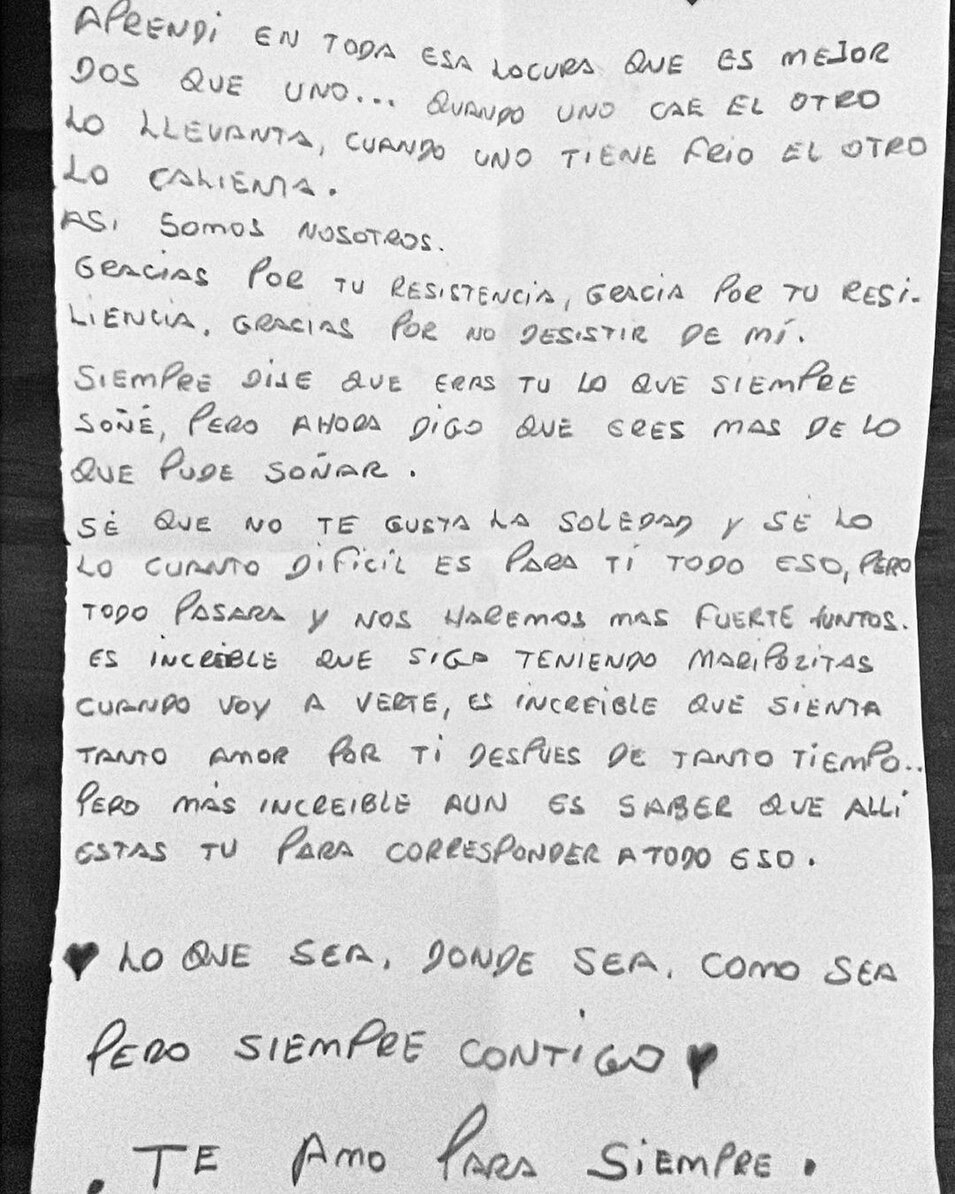 APRENDI EN TODA ESA LOCURA QUE ES MEJOR
DOS QUE UNO... QUANDO UNO CAE EL OTRO
LO LLEVANTA, CUANDO UNO TIENE FRIO EL OTRO
LO CALIENTA.
ASI SOMOS NOSOTROS.
GRACIAS POR TU RESISTENCIA, GRACIA POR TU RESI-
LIENCIA. GRACIAS POR NO DESISTIR DE MÍ.
SIEMPRE DIJE QUE ERAS TU LO QUE SIEMPRE
SOÑÉ, PERO AHORA DIGO QUE ERES MAS DE LO
QUE PUDE SOÑAR.
SÉ QUE NO TE GUSTA LA SOLEDAD Y SÉ LO
LO CUANTO DIFICIL ES PARA TI TODO ESO, PERO
TODO PASARA Y NOS HAREMOS MAS FUERTE JUNTOS.
ES INCREIBLE QUE SIGA TENIENDO MARIPOZITAS
CUANDO VOY A VERTE, ES INCREIBLE QUE SIENTA
TANTO AMOR POR TI DESPUES DE TANTO TIEMPO..
PERO MÁS INCREIBLE AUN ES SABER QUE ALLÍ
ESTAS TU PARA CORRESPONDER A TODO ESO.
♥ LO QUE SEA, DONDE SEA, COMO SEA
PERO SIEMPRE CONTIGO ♥
. TE AMO PARA SIEMPRE.